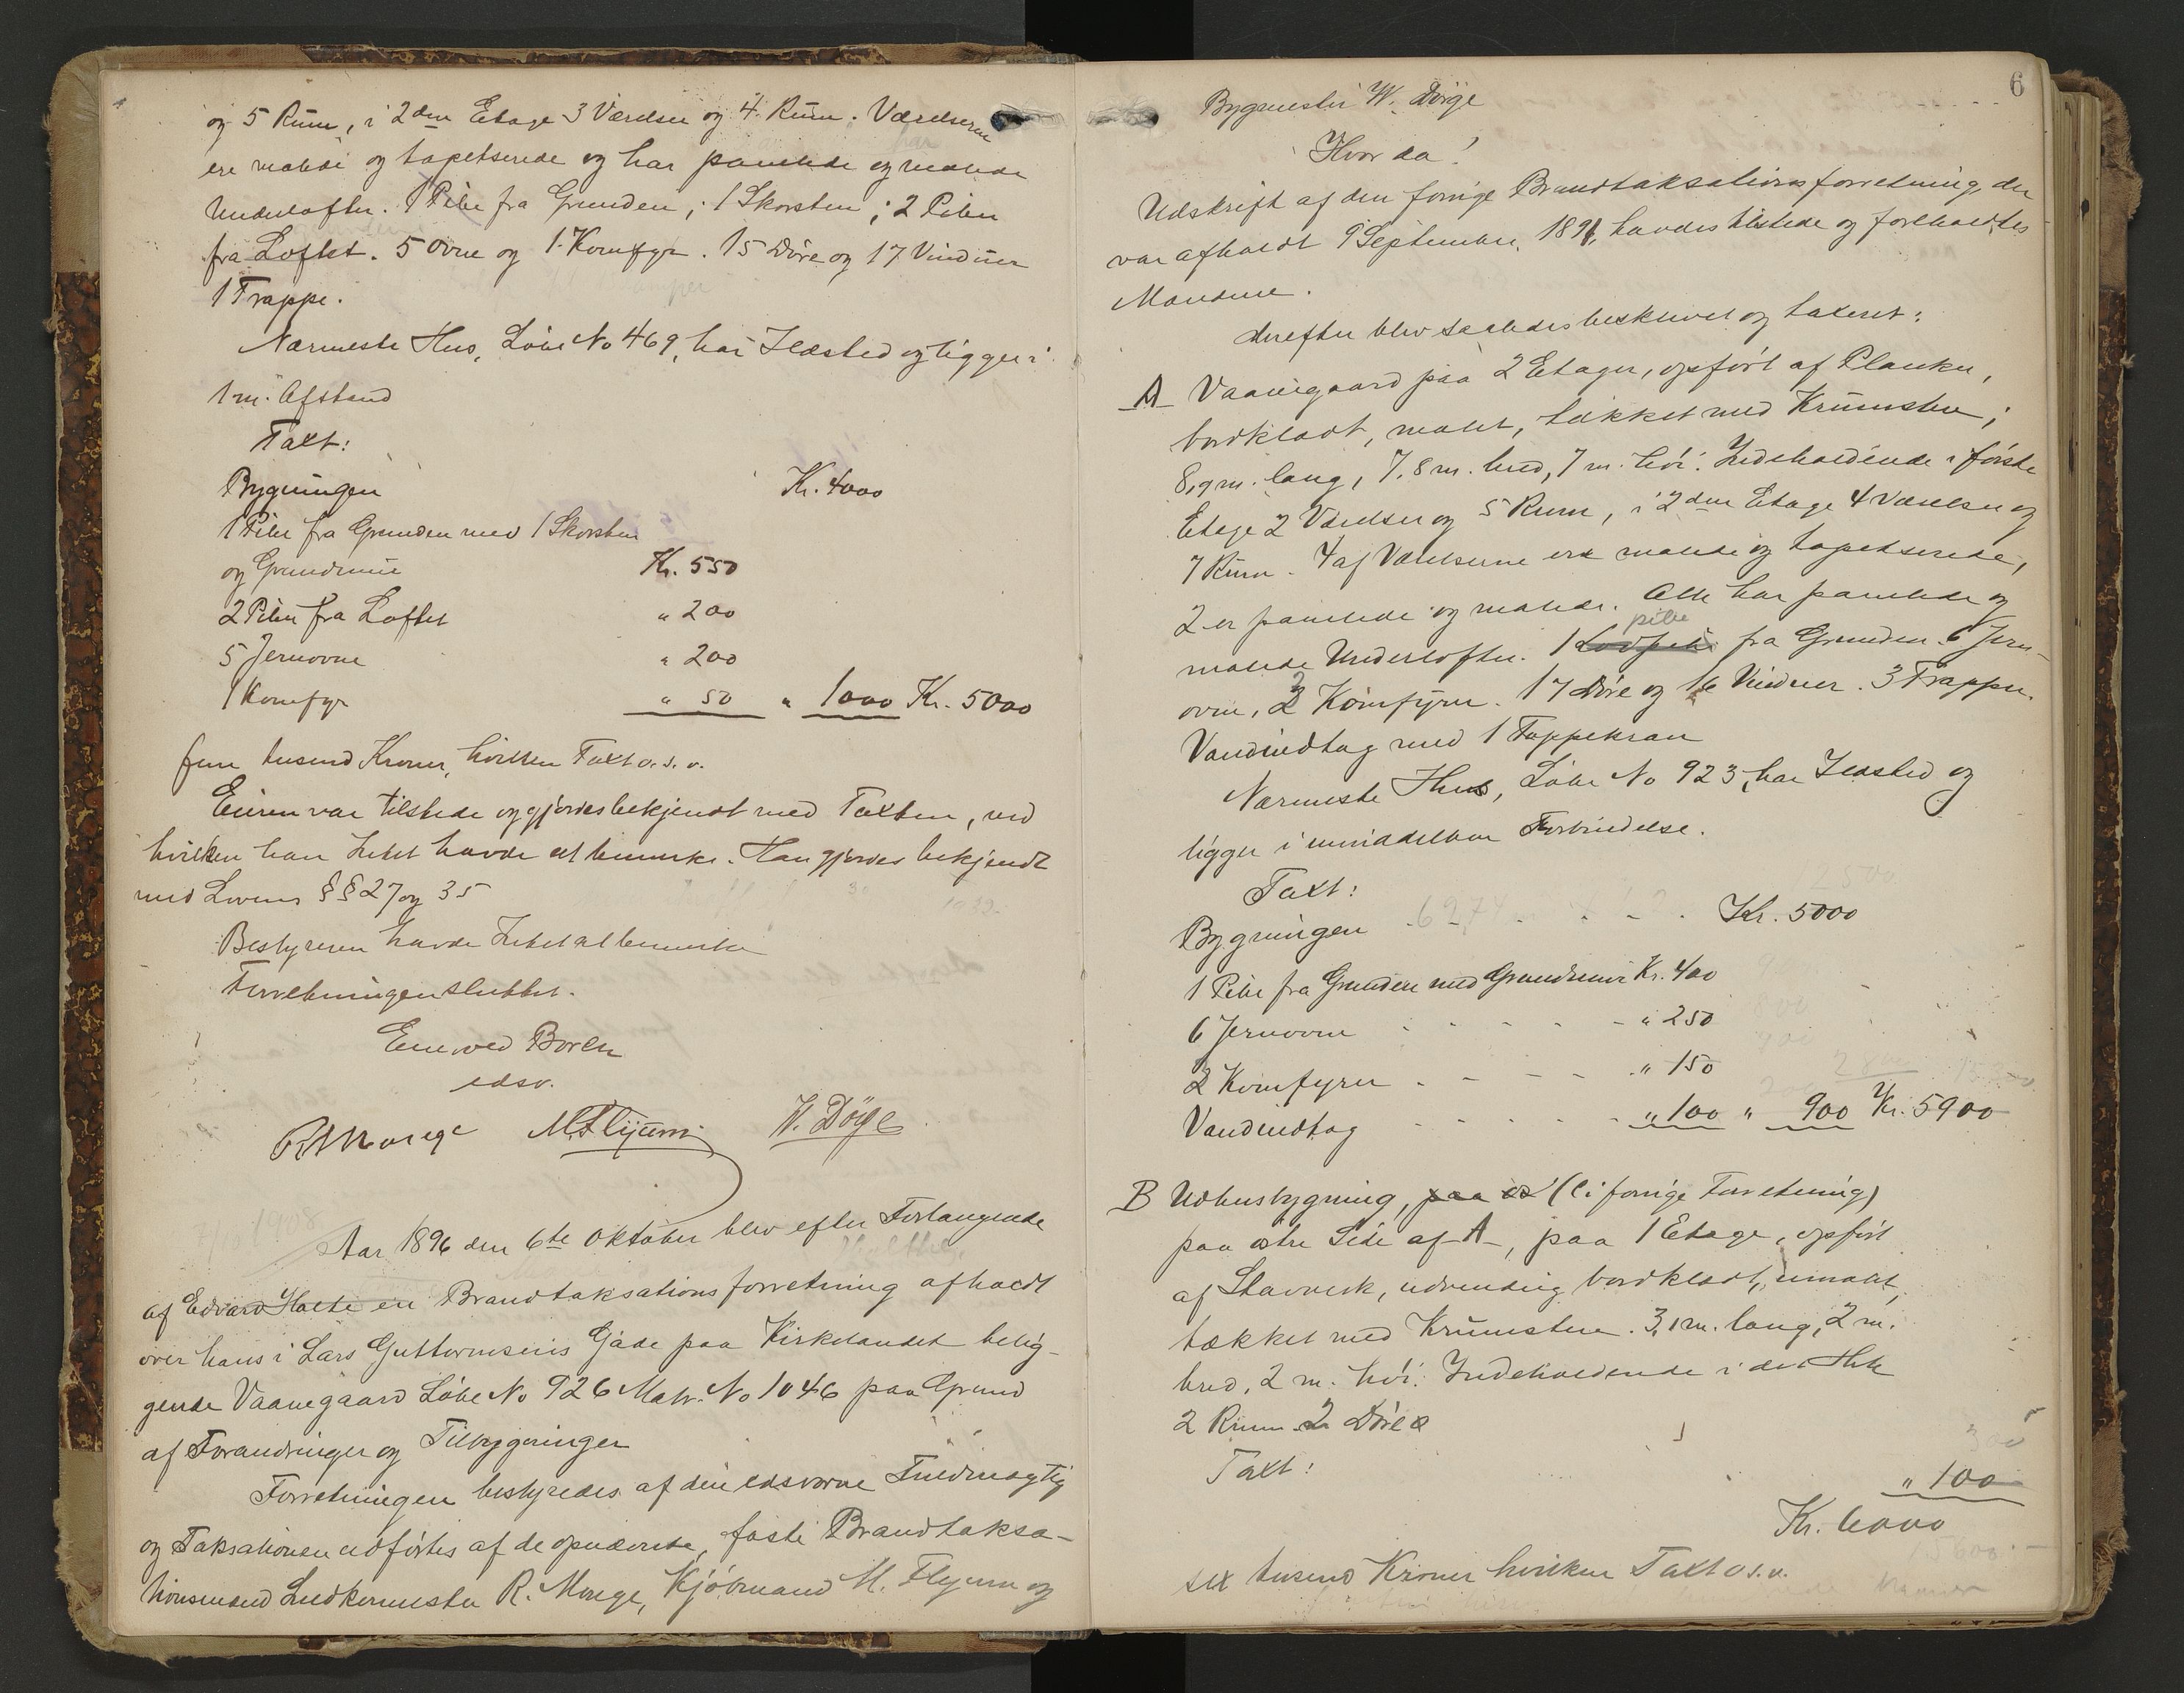 og 5 Rum, i 2den Etage 3 Værelser og 4 Rum. Værelserne
ere malede og tapetserede og har panelede og malede
Underlofter. 1 Pibe fra Grunden, 1 Skorsten; 2 Piber
fra Loftet. 5 Ovne og 1 Komfyr. 15 Døre og 17 Vinduer
1 Trappe.
Nærmeste Hus, Løbe No 469, har Ildsted og ligger i
1 m. Afstand
Taxt:
Bygningen Kr. 4000
1 Pibe fra Grunden med 1 Skorsten
og Grundmur Kr. 550
2 Piber fra Loftet " 200
5 Jernovne " 200
1 Komfyr " 50 " 1000 Kr. 5000
fem tusend Kroner, hvilken Taxt o. s. v.
Eieren var tilstede og gjordes bekjendt med Taxten, ved
hvilken han Intet havde at bemerke. Han gjordes bekjendt
med Lovens §§ 27 og 35
Bestyreren havde Intet at bemerke
Forretningen sluttet.
Enevod Borch
edsv.
R Morge M. Flyum W. Döge
Aar 1896 den 6te Oktober blev efter Forlangende
af Edvard Holte en Brandtaksationsforretning afholdt
over hans i Lars Guttormsens Gade paa Kirkelandet belig-
gende Vaanegaard Løbe No 926 Matr. No 1046 paa Grund
af Forandringer og Tilbygninger
Forretningen bestyredes af den edsvorne Fuldmægtig
og Taksationen udførtes af de opnævnte, faste Brandtaksa-
tionsmænd Snedkermester R. Morge, Kjøbmand M. Flyum og
6
Bygmester W. Döge
Hvor da!
Udskrift af den forrige Brandtaksationsforretning, der
var afholdt 9 September 1891, havdes tilstede og foreholdtes
Mændene.
Derefter blev saaledes beskrevet og taxeret:
A Vaanegaard paa 2 Etager, opført af Planker,
bordklædt, malet, tækket med Krumsten;
8,9 m. lang, 7,8 m. bred, 7 m. høi. Indeholdende i første
Etage 2 Værelser og 5 Rum, i 2den Etage 4 Værelser og
7 Rum. 4 af Værelserne ere malede og tapetserede,
2 er panelede og malede. Alle har panelede og
pibe
malede Underlofter. 1 Lodpibe fra Grunden. 6 Jern-
ovne, 2 Komfyrer. 17 Døre og 16 Vinduer. 3 Trapper.
Vandindtag med 1 Tappekran
Nærmeste Hus, Løbe No 923, har Ildsted og
ligger i umiddelbar Forbindelse.
Taxt:
Bygningen Kr. 5000
1 Pibe fra Grunden med Grundmur Kr. 400
6 Jernovne " 250
2 Komfyrer " 150
Vandindtag " 100 " 900 Kr. 5900
B Udhusbygning, paa (C i forrige Forretning)
paa østre Side af A, paa 1 Etage, opført
af Stavverk, udvendig bordklædt, umalet,
tækket med Krumsten. 3,1 m. lang, 2 m.
bred, 2 m. høi. Indeholdende i det Hele
2 Rum 2 Døre
Taxt: " 100
Kr. 6000
sex tusend Kroner hvilken Taxt o s. v.